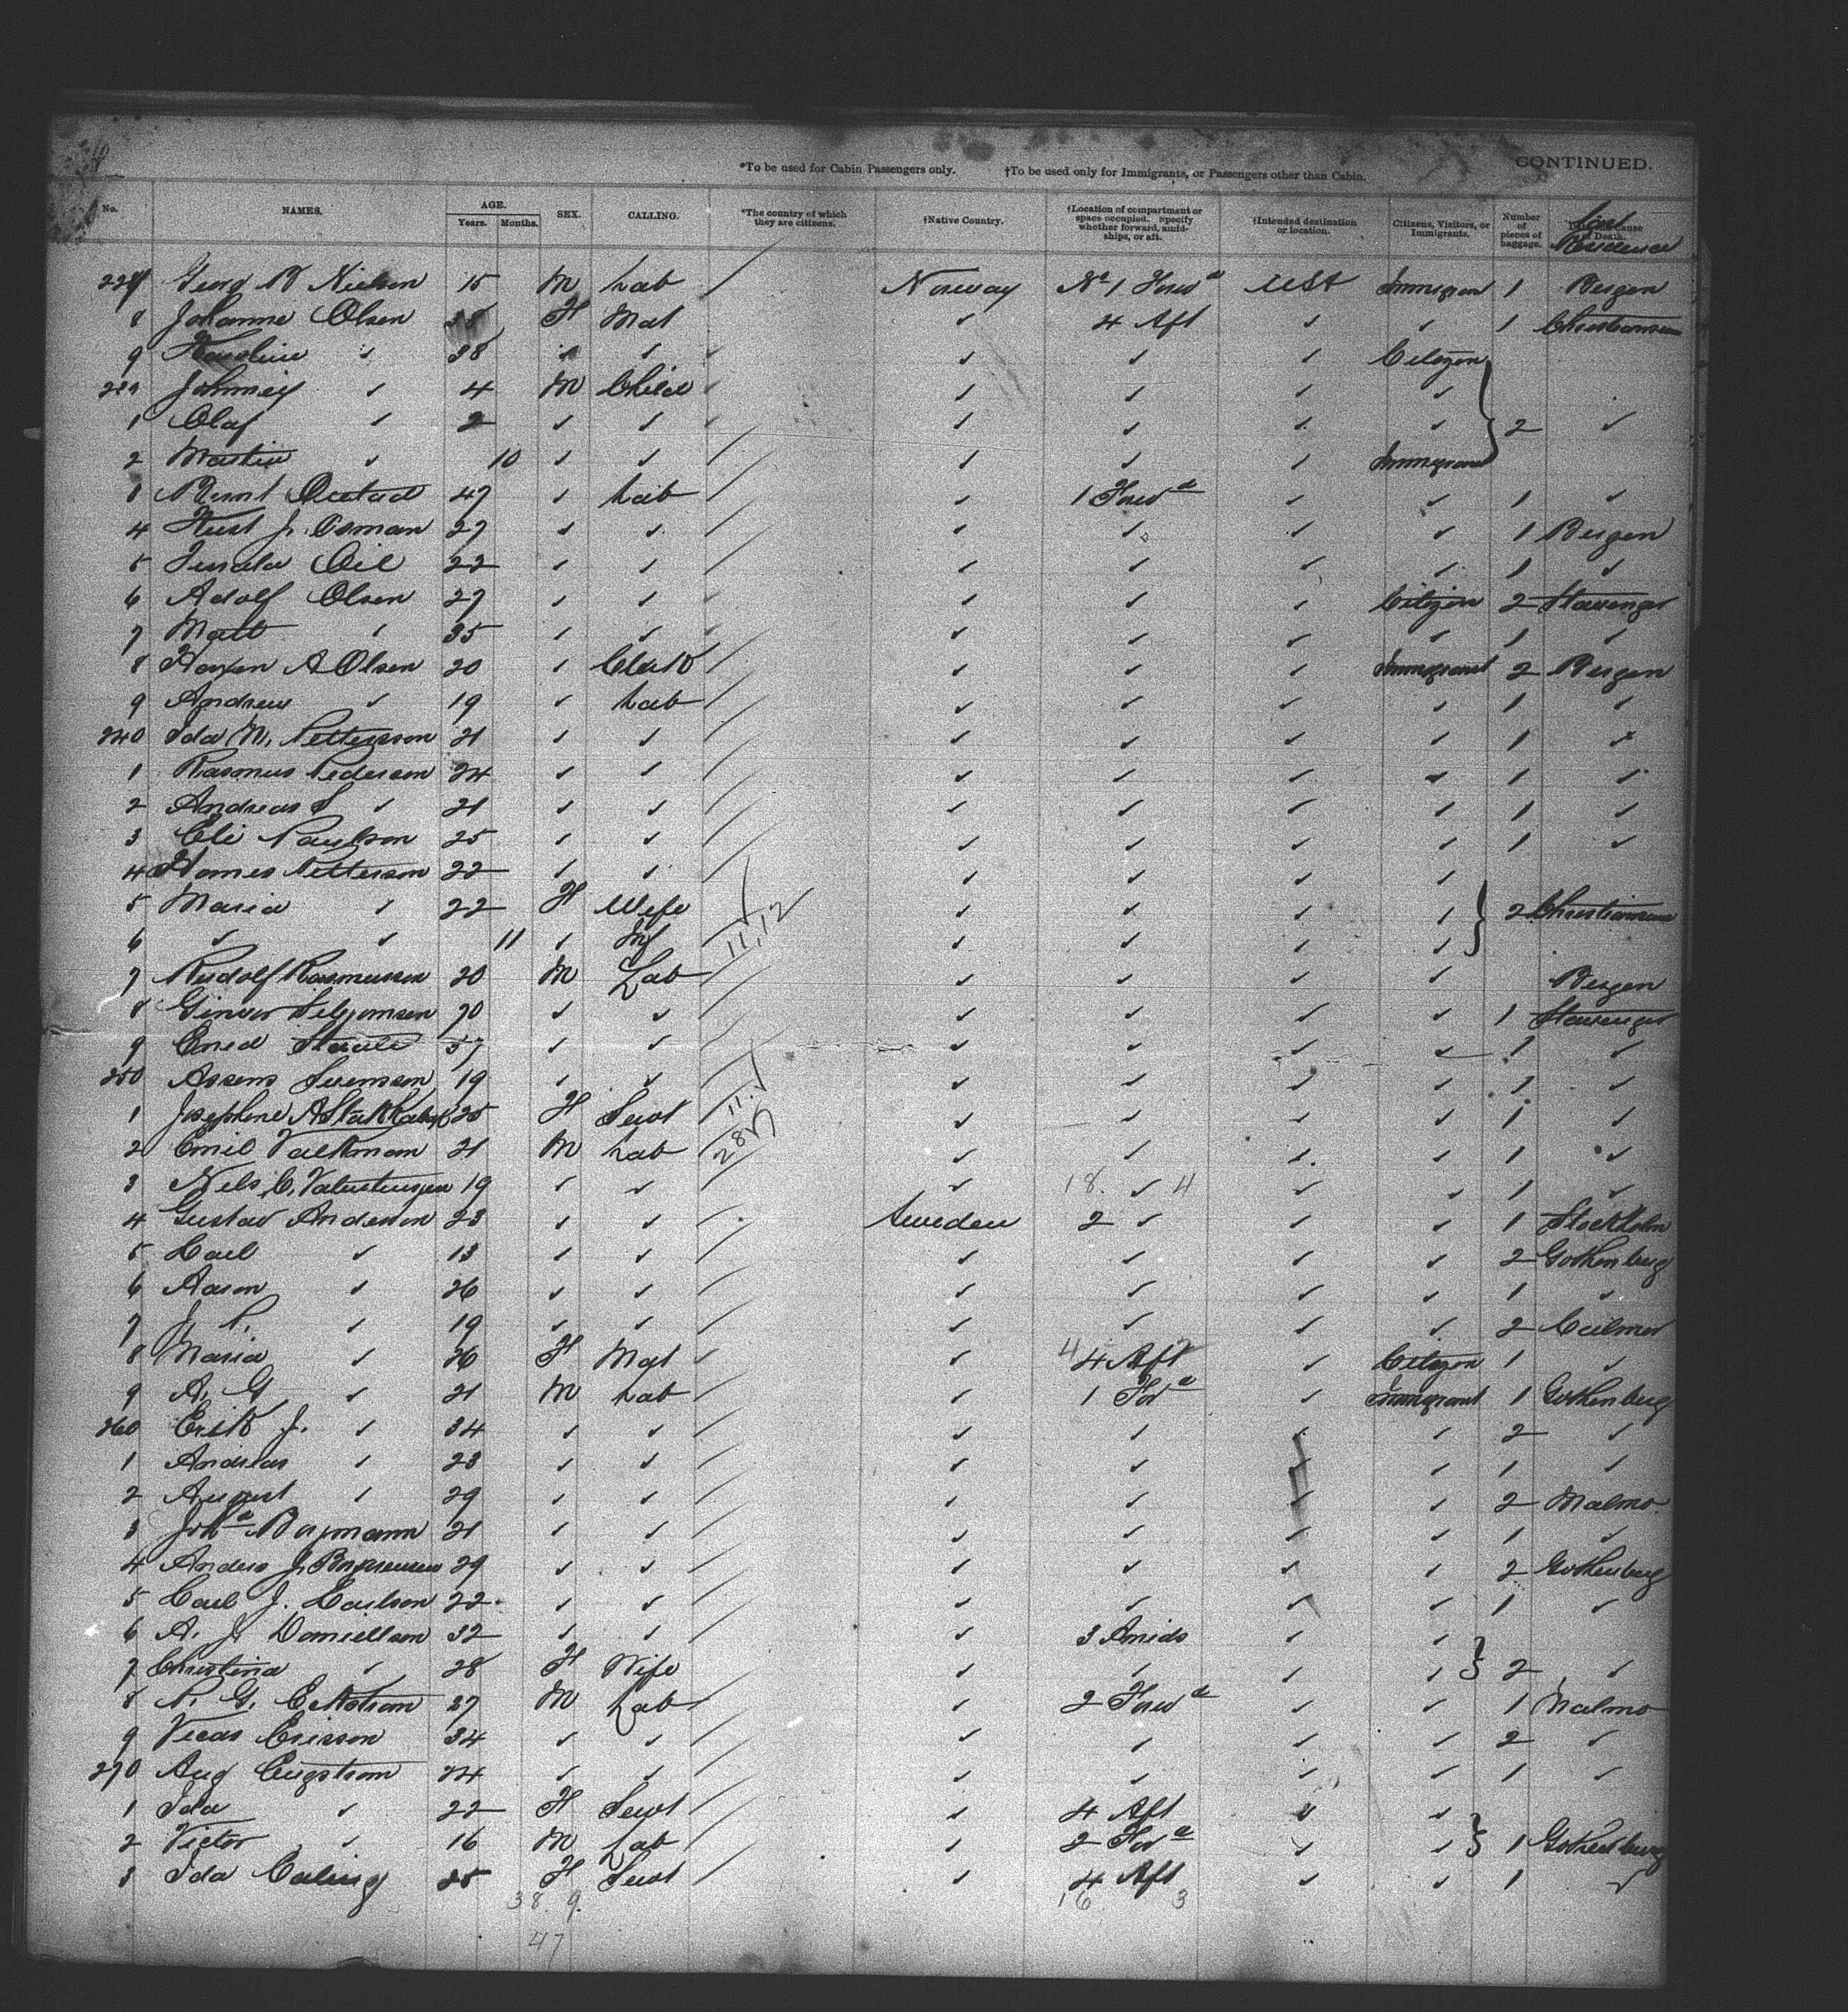 *To be used for Cabin Passengers only. †To be used only for Immigrants, or Passengers other than Cabin. CONTINUED.
No. NAMES. AGE. Years. Months. SEX. CALLING. *The country of which they are citizens. †Native Country. †Location of compartment or space occupied. Specify whether forward, amidships, or aft. †Intended destination or location. Citizens, Visitors, or Immigrants. Number of pieces of baggage. Last Residence
Nielsen 15 M Lab Norway No 1 Forwd USA Immigrant 1 Bergen
8 Johanne Olsen F Mat ✓ 4 Aft ✓ ✓ 1
9 ✓ 38 ✓ ✓ ✓ ✓ ✓ Citizen
Johnney ✓ 4 M Child ✓ ✓ ✓ ✓
1 Olaf ✓ 2 ✓ ✓ ✓ ✓ ✓ ✓ 2 ✓
2 Martin ✓ 10 ✓ ✓ ✓ ✓ ✓ Immigrant
47 ✓ Lab ✓ 1 Forwd ✓ ✓ 1 ✓
4 J. Osman 27 ✓ ✓ ✓ ✓ ✓ ✓ 1 Bergen
5 22 ✓ ✓ ✓ ✓ ✓ ✓ 1 ✓
6 Adolf Olsen 27 ✓ ✓ ✓ ✓ ✓ Citizen 2 Stavenger
7 Matt ✓ 35 ✓ ✓ ✓ ✓ ✓ ✓ 1 ✓
8 A Olsen 20 ✓ Clerk ✓ ✓ ✓ Immigrant 2 Bergen
9 Andrew ✓ 19 ✓ Lab ✓ ✓ ✓ ✓ 1 ✓
240 Ida M. Pettersson 21 ✓ ✓ ✓ ✓ ✓ ✓ 1 ✓
1 Rasmus Pederson 24 ✓ ✓ ✓ ✓ ✓ ✓ 1 ✓
2 Andreas S ✓ 21 ✓ ✓ ✓ ✓ ✓ ✓ 1 ✓
3 Eli Paulson 25 ✓ ✓ ✓ ✓ ✓ ✓ 1 ✓
4 Petterson 22 ✓ ✓ ✓ ✓ ✓ ✓
5 Maria ✓ 22 F Wife 11,12 ✓ ✓ ✓ ✓ 2
6 ✓ ✓ 11 ✓ Inf ✓ ✓ ✓ ✓
7 Rudolf Rasmussen 20 M Lab ✓ ✓ ✓ ✓ Bergen
8 ✓ ✓ ✓ ✓ ✓ ✓ 1 Stavenger
9 ✓ ✓ ✓ ✓ ✓ ✓ 1 ✓
250 Svensson 19 ✓ ✓ ✓ ✓ ✓ ✓ 1 ✓
1 Josephine 25 F Servt 11. ✓ ✓ ✓ ✓ 1 ✓
2 Emil 21 M Lab 28 ✓ ✓ ✓ ✓ 1 ✓
3 Nels C. 19 ✓ ✓ ✓ 18. ✓ 4 ✓ ✓ 1 ✓
4 Gustav Anderson 23 ✓ ✓ Sweden 2 ✓ ✓ ✓ 1 Stockholm
5 Carl ✓ 13 ✓ ✓ ✓ ✓ ✓ ✓ 2 Gothenburg
6 Aaron ✓ 26 ✓ ✓ ✓ ✓ ✓ ✓ 1 ✓
7 J. P. ✓ 19 ✓ ✓ ✓ ✓ ✓ ✓ 2
8 Maria ✓ 26 F Mat ✓ 4 Aft ✓ Citizen 1 ✓
9 A. G. ✓ 21 M Lab ✓ 1 Ford ✓ Immigrant 1 Gothenburg
260 Erik J. ✓ 34 ✓ ✓ ✓ ✓ ✓ ✓ 2 ✓
1 Andreas ✓ 23 ✓ ✓ ✓ ✓ ✓ ✓ 1 ✓
2 August ✓ 29 ✓ ✓ ✓ ✓ ✓ ✓ 2 Malmo
3 21 ✓ ✓ ✓ ✓ ✓ ✓ 1 ✓
4 Anders J. 29 ✓ ✓ ✓ ✓ ✓ ✓ 2 Gothenburg
5 Carl J. Carlson 22 ✓ ✓ ✓ ✓ ✓ ✓ 1 ✓
6 A. J. Daniellson 32 ✓ ✓ ✓ 3 Amids ✓ ✓
7 Christina ✓ 28 F Wife ✓ ✓ ✓ ✓ 2 ✓
8 27 M Lab ✓ 2 Forwd ✓ ✓ 1 Malmo
9 Ericson 34 ✓ ✓ ✓ ✓ ✓ ✓ 2 ✓
270 Aug Engstrom 24 ✓ ✓ ✓ ✓ ✓ ✓ 1 ✓
1 Ida ✓ 22 F Servt ✓ 4 Aft ✓ ✓
2 Victor ✓ 16 M Lab ✓ 2 Ford ✓ ✓ 1 Gothenburg
3 Ida 25 F Servt ✓ 4 Aft ✓ ✓ 1 ✓
38. 9. 16 3
47